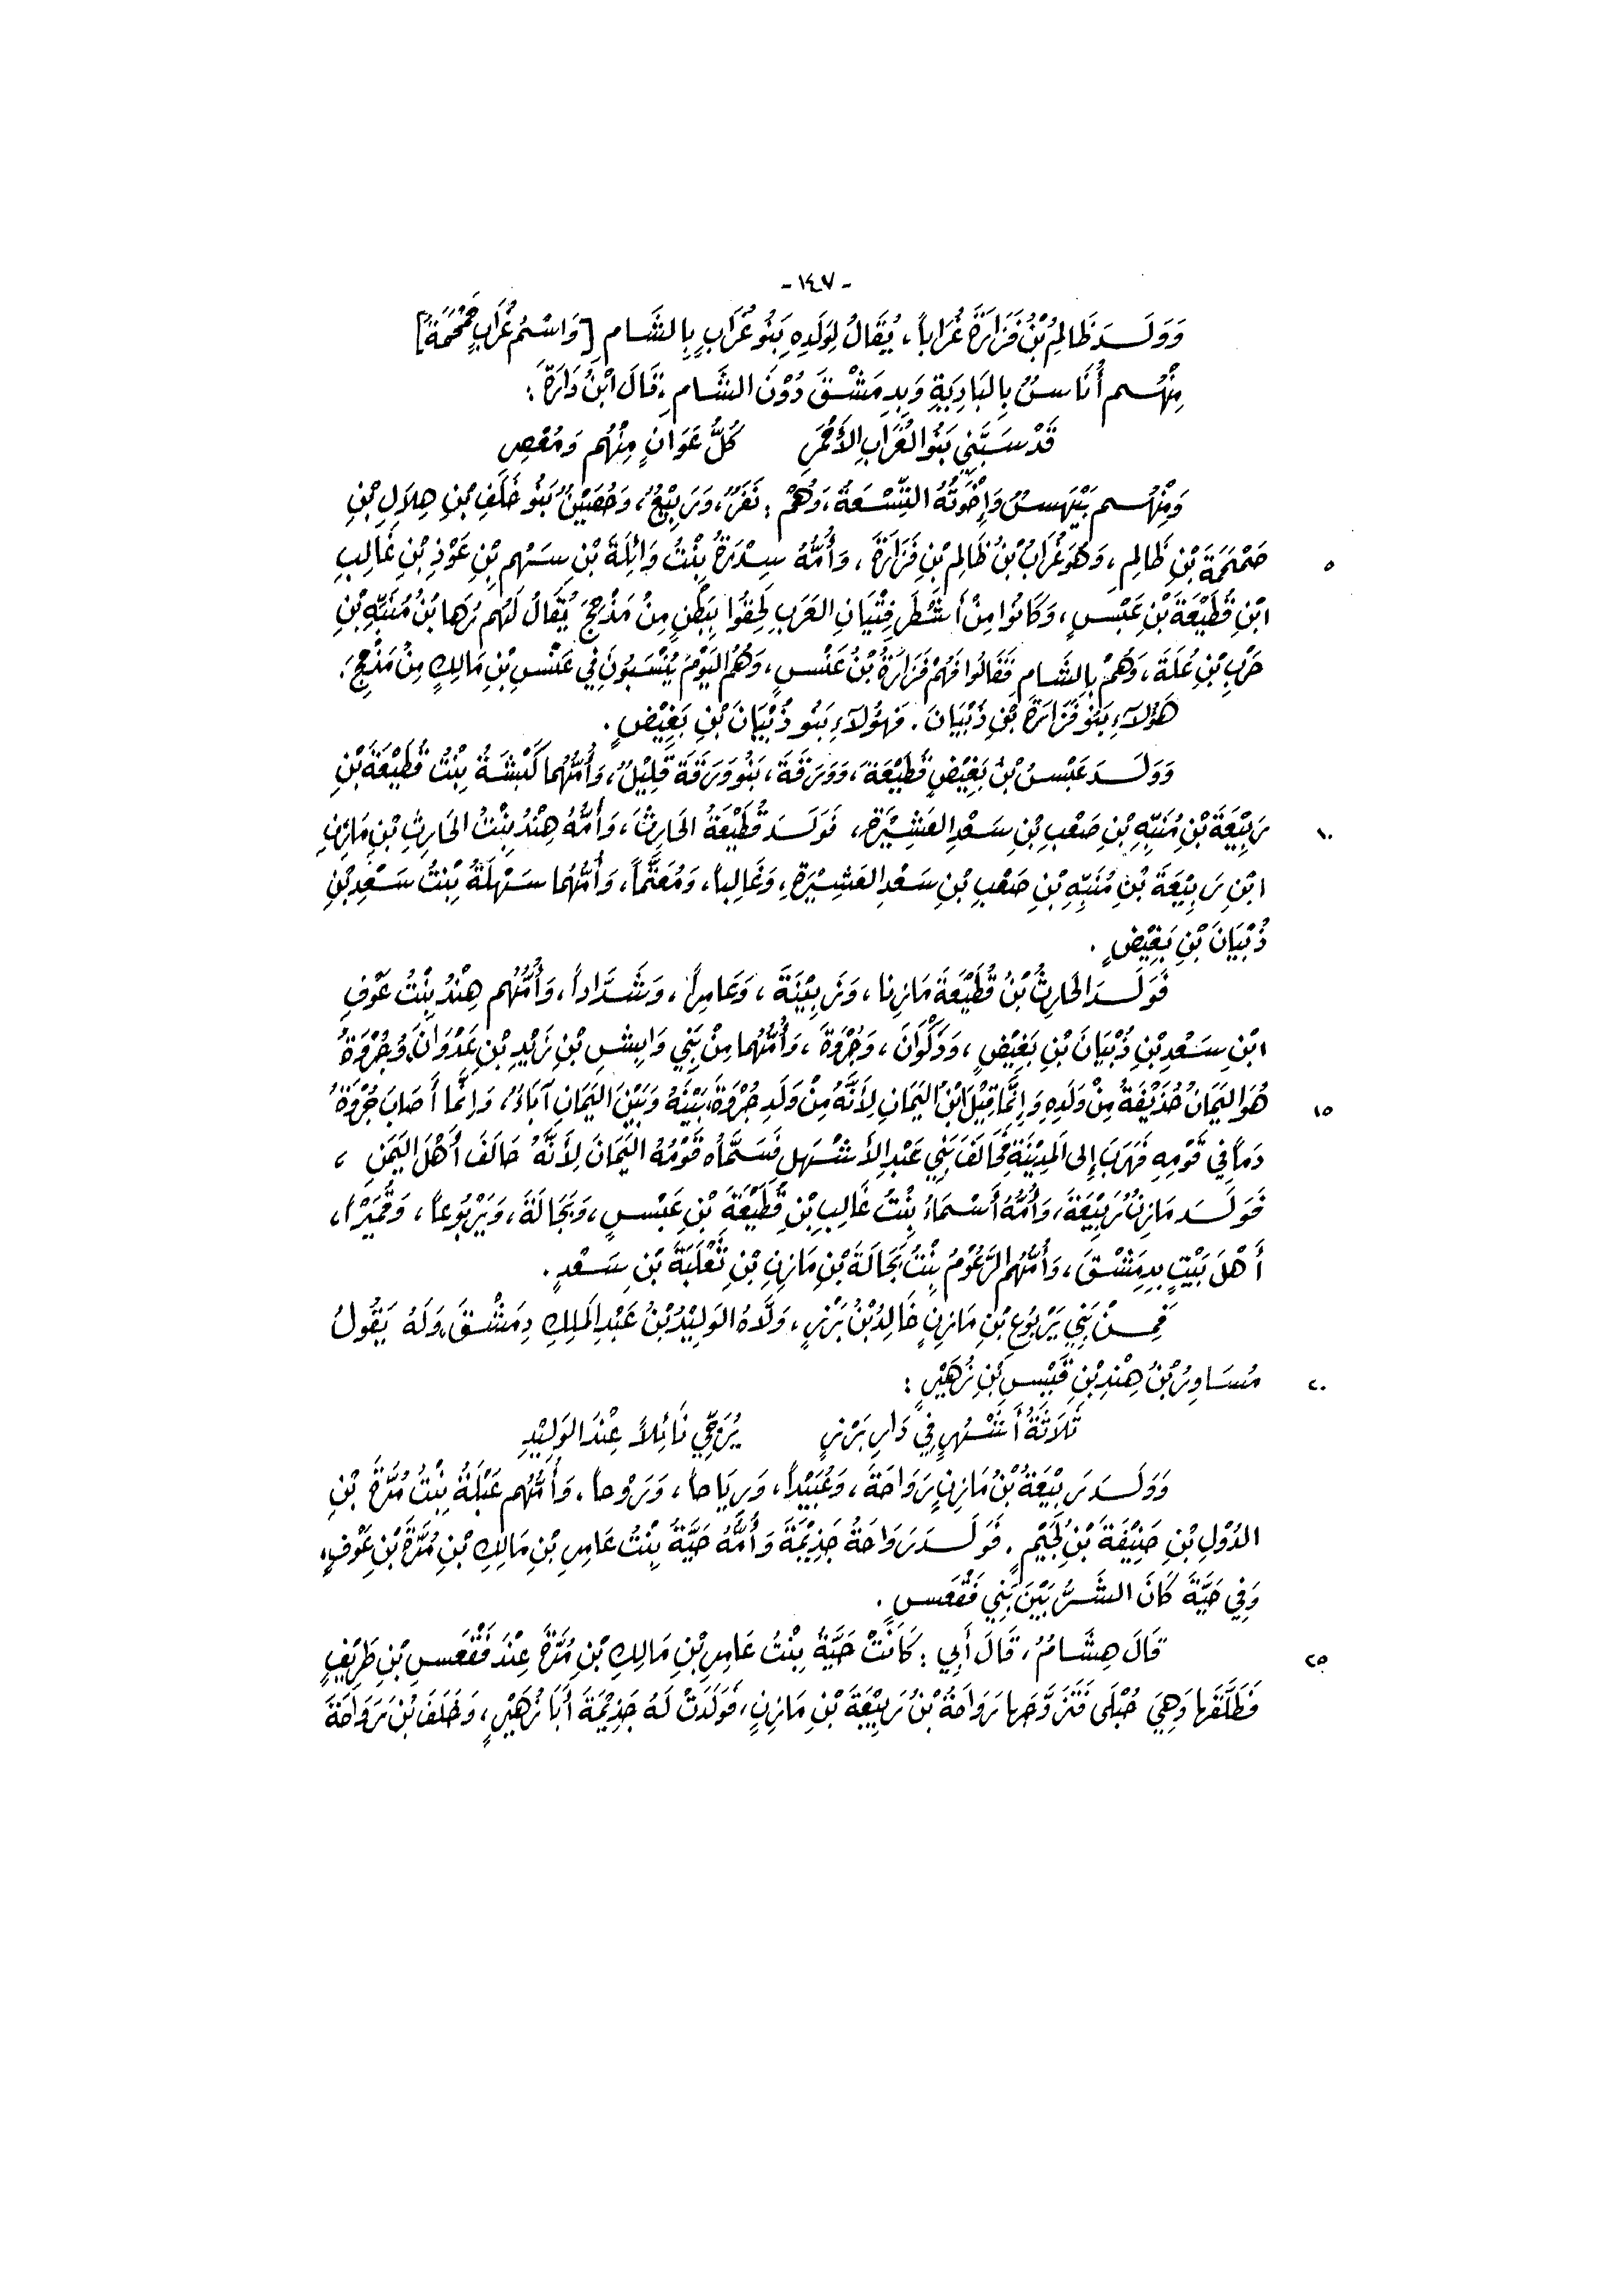 - ١٤٧ -
وَوَلَـدَ ظَالِمُ بْنُ فَزَارَةَ غُرَاباً، يُقَالُ لِوَلَدِهِ بَنُو غُرَابٍ بِالشَّامِ [وَاسْمُ غُرَابٍ حَمْحَمَةُ]
مِنْهُـم أُنَاسٌ بِالبَادِيَةِ وَبِدِمَشْقَ دُوْنَ الشَّامِ، قَالَ ابْنُ دَارَةَ:
قَدْ سَبَّنِي بَنُو الغُرَابِ الأَحْمَرِ كُلُّ عَوَانٍ مِنْهُم وَمُعْصِرِ
وَمِنْهُـم بَيْهَسٌ وَإِخْوَتُهُ التِّسْعَةُ، وَهُمْ: نَفَرٌ، وَرَبِيْعٌ، وَحُصَيْنٌ بَنُو خَلَفِ بْنِ هِلَالِ بْنِ
٥ حَمْحَمَةَ بْنِ ظَالِمٍ، وَهُوَ غُرَابُ بْنُ ظَالِمِ بْنِ فَزَارَةَ، وَأُمُّهُ سِدْرَةُ بِنْتُ وَائِلَةَ بْنِ سَهْمِ بْنِ عَوْذِ بْنِ غَالِبِ
ابْنِ قُطَيْعَةَ بْنِ عَبْسٍ، وَكَانُوا مِنْ أَشْطَرِ فِتْيَانِ العَرَبِ لَحِقُوا بِبَطْنٍ مِنْ مَذْحِجَ يُقَالُ لَهُم رُهَا بْنُ مُنَبِّهِ بْنِ
حَرْبِ بْنِ عُلَةَ، وَهُمْ بِالشَّامِ فَقَالُوا فَهُمْ فَزَارَةُ بْنُ عَنْسٍ، وَهُمُ اليَوْمَ يُنْسَبُونَ فِي عَنْسِ بْنِ مَالِكٍ مِنْ مَذْحِجَ.
هَؤُلَاءِ بَنُو فَزَارَةَ بْنِ ذُبْيَانَ. فَهَؤُلَاءِ بَنُو ذُبْيَانَ بْنِ بَغِيْضٍ.
وَوَلَـدَ عَبْسُ بْنُ بَغِيْضٍ قُطَيْعَةَ، وَوَرَقَةَ، بَنُو وَرَقَةَ قَلِيْلٌ، وَأُمُّهُمَا كَبْشَةُ بِنْتُ قُطَيْعَةَ بْنِ
١٠ رَبِيْعَةَ بْنِ مُنَبِّهِ بْنِ صَعْبِ بْنِ سَعْدِ العَشِيْرَةِ، فَوَلَـدَ قُطَيْعَةُ الحَارِثَ، وَأُمُّهُ هِنْدُ بِنْتُ الحَارِثِ بْنِ مَازِنِ
ابْنِ رَبِيْعَةَ بْنِ مُنَبِّهِ بْنِ صَعْبِ بْنِ سَعْدِ العَشِيْرَةِ، وَغَالِباً، وَمُعْتَمّاً، وَأُمُّهُمَا سَهْلَةُ بِنْتُ سَعْدِ بْنِ
ذُبْيَانَ بْنِ بَغِيْضٍ.
فَوَلَـدَ الحَارِثُ بْنُ قُطَيْعَةَ مَازِنَا، وَزَبِيْنَةَ، وَعَامِراً، وَشَدَّاداً، وَأُمُّهُم هِنْدُ بِنْتُ عَوْفِ
ابْنِ سَعْدِ بْنِ ذُبْيَانَ بْنِ بَغِيْضٍ، وَذَكْوَانَ، وَجُرْوَةَ، وَأُمُّهُمَا مِنْ بَنِي وَابِشِ بْنِ زَيْدِ بْنِ عَدْوَانَ، وَجُرْوَةُ
١٥ هُوَ اليَمَانُ حُذَيْفَةُ مِنْ وَلَدِهِ وَإِنَّمَا قِيْلَ ابْنُ اليَمَانِ لِأَنَّهُ مِنْ وَلَدِ جُرْوَةَ، بَيْنَهُ وَبَيْنَ اليَمَانِ آبَاءٌ، وَإِنَّمَا أَصَابَ جُرْوَةُ
دَماً فِي قَوْمِهِ فَهَرَبَ إِلَى المَدِيْنَةِ فَحَالَفَ بَنِي عَبْدِ الأَشْهَلِ فَسَمَّاهُ قَوْمُهُ اليَمَانَ لِأَنَّهُ حَالَفَ أَهْلَ اليَمَنِ،
فَوَلَـدَ مَازِنُ رَبِيْعَةَ، وَأُمُّهُ أَسْمَاءُ بِنْتُ غَالِبِ بْنِ قُطَيْعَةَ بْنِ عَبْسٍ، وَبَجَالَةَ، وَيَرْبُوعاً، وَقُمَيْراً،
أَهْلَ بَيْتٍ بِدِمَشْقَ، وَأُمُّهُم الرَّعُوْمُ بِنْتُ بَجَالَةَ بْنِ مَازِنِ بْنِ ثَعْلَبَةَ بْنِ سَعْدٍ.
فَمِـنْ بَنِي يَرْبُوعِ بْنِ مَازِنٍ خَالِدُ بْنُ بَرْزٍ، وَلَّاهُ الوَلِيْدُ بْنُ عَبْدِ المَلِكِ دِمَشْقَ، وَلَهُ يَقُولُ
٢٠ مُسَاوِرُ بْنُ هِنْدِ بْنِ قَيْسِ بْنِ زُهَيْرٍ:
ثَلَاثَةُ أَشْهُرٍ فِي دَارِ بَرْزٍ يُرَجِّي نَائِلاً عِنْدَ الوَلِيْدِ
وَوَلَـدَ رَبِيْعَةُ بْنُ مَازِنٍ رَوَاحَةَ، وَعُبَيْداً، وَرِيَاحاً، وَرَوْحاً، وَأُمُّهُم عَبْلَةُ بِنْتُ مُرَّةَ بْنِ
الدُّوْلِ بْنِ حَنِيْفَةَ بْنِ لُجَيْمٍ. فَوَلَـدَ رَوَاحَةُ جَذِيْمَةَ وَأُمُّهُ حَيَّةُ بِنْتُ عَامِرِ بْنِ مَالِكِ بْنِ مُرَّةَ بْنِ عَوْفٍ،
وَفِي حَيَّةَ كَانَ الشَّرُّ بَيْنَ بَنِي فَقْعَسٍ.
٢٥ قَالَ هِشَامٌ، قَالَ أَبِي: كَانَتْ حَيَّةُ بِنْتُ عَامِرِ بْنِ مَالِكِ بْنِ مُرَّةَ عِنْدَ فَقْعَسِ بْنِ طَرِيْفٍ
فَطَلَّقَهَا وَهِيَ حُبْلَى فَتَزَوَّجَهَا رَوَاحَةُ بْنُ رَبِيْعَةَ بْنِ مَازِنٍ، فَوَلَدَتْ لَهُ جَذِيْمَةَ أَبَا زُهَيْرٍ، وَخَلَفَ بْنَ رَوَاحَةَ